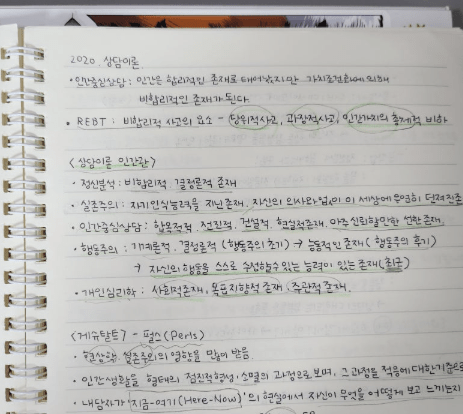 2020. 상담이론
• 인간중심상담 : 인간은 합리적인 존재로 태어났지만 가치조건화에 의해
비합리적인 존재가 된다.
• REBT : 비합리적 사고의 요소 - 당위적사고, 과장적사고, 인간가치의 총체적 비하
<상담이론 인간관>
• 정신분석 : 비합리적. 결정론적 존재
• 실존주의 : 자기인식능력을 지닌존재, 자신의 의사와 없이 이 세상에 우연히 던져진존
• 인간중심상담 : 합목적적, 전진적, 건설적, 현실적존재, 아주신뢰할만한 선한존재,
• 행동주의 : 기계론적, 결정론적 (행동주의 초기) → 능동적인 존재 (행동주의 후기)
→ 자신의 행동을 스스로 수정할수 있는 능력이 있는 존재(최근)
• 개인심리학 : 사회적존재, 목표지향적 존재, 주관적 존재,
<게슈탈트> - 펄스(Perls)
• 현상학, 실존주의의 영향을 많이 받음.
• 인간생활을 형태의 점진적형성·소멸의 과정으로 보며, 그과정을 적응에 대한기준으로
• 내담자가 '지금-여기(Here-Now)'의 현실에서 자신이 무엇을 어떻게 보고 느끼는지